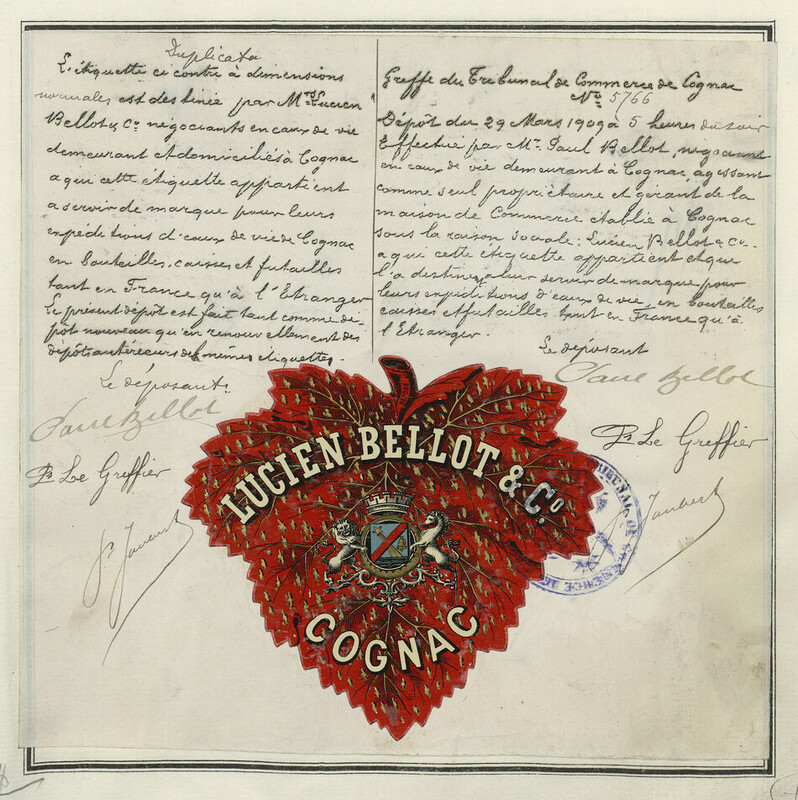 Duplicata
L'étiquette ci contre à dimensions
normales est destinée par Mrs Lucien
Bellot & Co négociants en eaux de vie
demeurant et domiciliés à Cognac
a qui cette étiquette appartient
a servir de marque pour leurs
expéditions d'eaux de vie de Cognac
en bouteilles, caisses et futailles
tant en France qu'à l'Etranger
Le présent dépôt est fait tant comme dé-
pôt nouveau qu'en renouvellement des
dépôts antérieurs des mêmes étiquettes.
Le déposant.
Paul Bellot
Pr Le Greffier
Greffe du Tribunal de Commerce de Cognac
No 5766
Dépôt du 29 Mars 1909 à 5 heures du soir
Effectué par Mr. Paul Bellot, négociant
en eaux de vie demeurant à Cognac, agissant
comme seul propriétaire et gérant de la
maison de Commerce établie à Cognac
sous la raison sociale: Lucien Bellot & Co.
a qui cette étiquette appartient et que
l'a destinée a leur servir de marque pour
leurs expéditions d'eaux de vie, en bouteilles
caisses et futailles tant en France qu'à
l'Etranger.
Le déposant
Paul Bellot
Pr Le Greffier
LUCIEN BELLOT & Co.
COGNAC